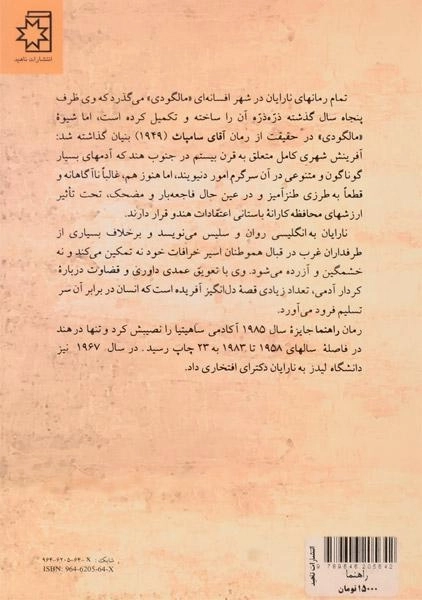 انتشارات ناهید
تمام رمانهای نارایان در شهر افسانه‌ای «مالگودی» می‌گذرد که وی ظرف
پنجاه سال گذشته ذرّه‌ذرّه آن را ساخته و تکمیل کرده است، اما شیوهٔ
«مالگودی» در حقیقت از رمان آقای سامپات (۱۹۴۹) بنیان گذاشته شد:
آفرینش شهری کامل متعلق به قرن بیستم در جنوب هند که آدمهای بسیار
گوناگون و متنوعی در آن سرگرم امور دنیویند، اما هنوز هم، غالباً ناآگاهانه و
قطعاً به طرزی طنزآمیز و در عین حال فاجعه‌بار و مضحک، تحت تأثیر
ارزشهای محافظه‌کارانهٔ باستانی اعتقادات هندو قرار دارند.
نارایان به انگلیسی روان و سلیس می‌نویسد و برخلاف بسیاری از
طرفداران غرب در قبال هموطنان اسیر خرافات خود نه تمکین می‌کند و نه
خشمگین و آزرده می‌شود. وی با تعویق عمدی داوری و قضاوت دربارهٔ
کردار آدمی، تعداد زیادی قصهٔ دل‌انگیز آفریده است که انسان در برابر آن سر
تسلیم فرود می‌آورد.
رمان راهنما جایزهٔ سال ۱۹۸۵ آکادمی ساهیتیا را نصیبش کرد و تنها در هند
در فاصلهٔ سالهای ۱۹۵۸ تا ۱۹۸۳ به ۲۳ چاپ رسید. در سال ۱۹۶۷ نیز
دانشگاه لیدز به نارایان دکترای افتخاری داد.
شابک: X -۶۴-۶۲۰۵-۹۶۴
ISBN: 964-6205-64-X
انتشارات ناهید
9789646205642
راهنما
۱۵۰۰۰ تومان